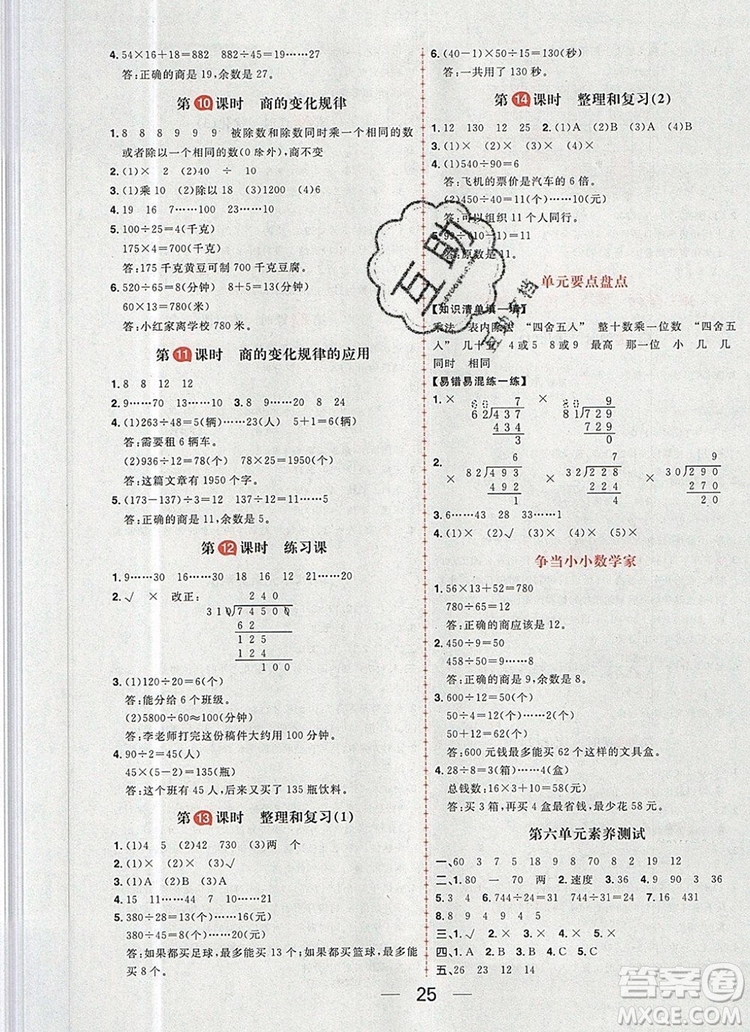 4. 54×16+18=882　882÷45=19……27
答:正确的商是 19,余数是 27。
第10课时　商的变化规律
1. 8　8　8　9　9　9　被除数和除数同时乘一个相同的数
或者除以一个相同的数(0 除外),商不变
2. (1)乘 10　(2)除以 18　(3)1200　150　10
4. 19　16　7……100　23……10
5. 100÷25=4(千克)
175×4=700(千克)
答:175 千克黄豆可制 700 千克豆腐。
6. 520÷65=8(分钟)　8+5=13(分钟)
60×13=780(米)
答:小红家离学校 780 米。
第11课时　商的变化规律的应用
1. 8　8　12　12
2. 9……70　9……40　9……20　8　20　24
4. (1)263÷48=5(辆)……23(人)　5+1=6(辆)
答:需要租 6 辆车。
(2)936÷12=78(个)　78×25=1950(个)
答:这篇文章有 1950 个字。
5. (173-137)÷(15-12)=12　137÷12=11……5
答:正确的商是 11,余数是 5。
第12课时　练习课
1. 9……30　20……30　18　16　12　21……20
2. √　×　改正:
240
310)74500
62
125
124
100
3. (1)120÷20=6(个)
答:能分给 6 个班级。
(2)5800÷60≈100(分钟)
答:李老师打完这份稿件大约用 100 分钟。
4. 90÷2=45(人)
45×(5-2)=135(瓶)
答:这个班有 45 人,后来又买了 135 瓶饮料。
第13课时　整理和复习(1)
1. (1)4　5　(2)42　730　(3)两　个
2. (1)×　(2)×　(3)√
3. (1)A　(2)B　(3)A
4. 15　15……4　14　7……10　11……21
5. 380÷28=13(个)……16(元)
380÷45=8(个)……20(元)
答:如果都买足球,最多能买 13 个;如果都买篮球,最多能
买 8 个。
6. (40-1)×5÷(40-1)... 
答:一共用了 130 秒。
第14课时　整理和复习(2)
1. 12　130　12　25　2. (1)A　(2)A
3. (1)×　(2)×
4. (1)540÷90=6
答:飞机的票价是汽车的 6 倍。
答:可以组织 11 人同行。
5. 99÷(10-1)=11
答:原数是 11。
单元要点盘点
【知识清单填一填】
乘法　表内乘法　“四舍五入”　整十数乘一位数　“四舍五
入”　几十五　4 或 5　8 或 9　最高　那一位　几　几
同时　相同
【易错易混练一练】
1. ×
7
62)437
434
3
×
9
81)729
729
0
2. ×
6
82)493
492
1
×
8
28)228
224
4
×
7
32)250
224
26
3. 6……44　28　33……15　7
4. (1)×　(2)√　(3)×　(4)×
争当小小数学家
1. 56×13+52=780
780÷65=12
答:正确的商应该是 12。
2. 450÷9=50
458÷50=9……8
答:正确的商是 9,余数是 8。
3. 600÷12=50(个)
50÷4=12(个)……2(个)
50+12=62(个)
答:600 元钱最多能买 62 个这样的文具盒。
4. 28÷8=3(箱)……4(箱)
总钱数:16×3+10=58(元)
答:买 3 箱,再买 4 瓶最省钱,最少花 58 元。
第六单元素养测试
一、60　3　7　12　90　8　23　30　31　8
二、1. 80　一　70　两　2. 速度　3. 20　4. 5
5. 4　50　6. 744÷24=31　744÷31=24　7. 9
8. 9　4　9. >　=　<　<
三、1. ×　2. ×　3. √　4. ×　5. ×
四、1. A　2. C　3. C　4. B　5. C
五、26　23　12　12……16
25
互助
互助文档
答案圈
MXQE.COM